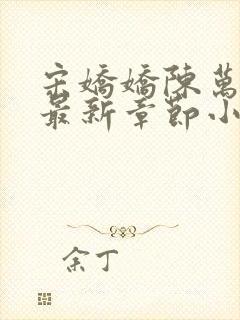 宋嬌嬌陳萬
最新章節小
余丁